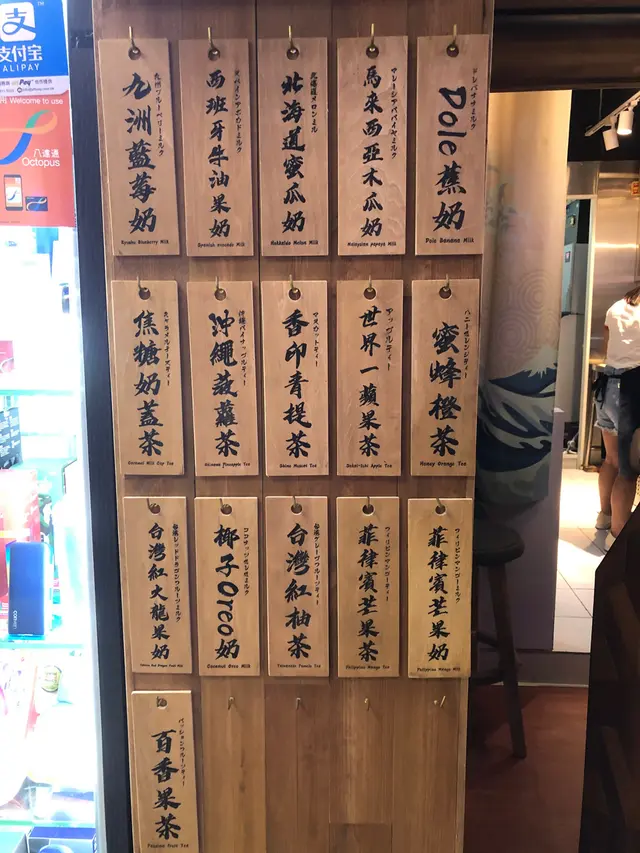 支付宝
ALIPAY
Welcome to use
八達通
Octopus
九洲藍莓奶
九州ブルーベリーミルク
Kyushu Blueberry Milk
西班牙牛油果奶
スペインアボカドミルク
Spanish avocado Milk
北海道蜜瓜奶
北海道メロンミル
Hokkaido Melon Milk
馬來西亞木瓜奶
マレーシアパパイヤミルク
Malaysian papaya Milk
Dole蕉奶
Dole Banana Milk
焦糖奶蓋茶
キャラメルチーズティー
Caramel Milk Cap Tea
沖繩菠蘿茶
沖縄パイナップルティー
Okinawa Pineapple Tea
香印青提茶
マスカットティー
Shine Muscat Tea
世界一蘋果茶
アップルティー
Sekai-Ichi Apple Tea
蜜蜂橙茶
ハニーオレンジティー
Honey Orange Tea
台灣紅火龍果奶
台湾レッドドラゴンフルーツミルク
椰子Oreo奶
Coconut Oreo Milk
台灣紅柚茶
台湾グレープフルーツティー
Taiwanese Pomelo Tea
菲律賓芒果茶
フィリピンマンゴーティー
Philippine Mango Tea
菲律賓芒果奶
フィリピンマンゴーミルク
Philippine Mango Milk
百香果茶
パッションフルーツティー
Passion fruit Tea